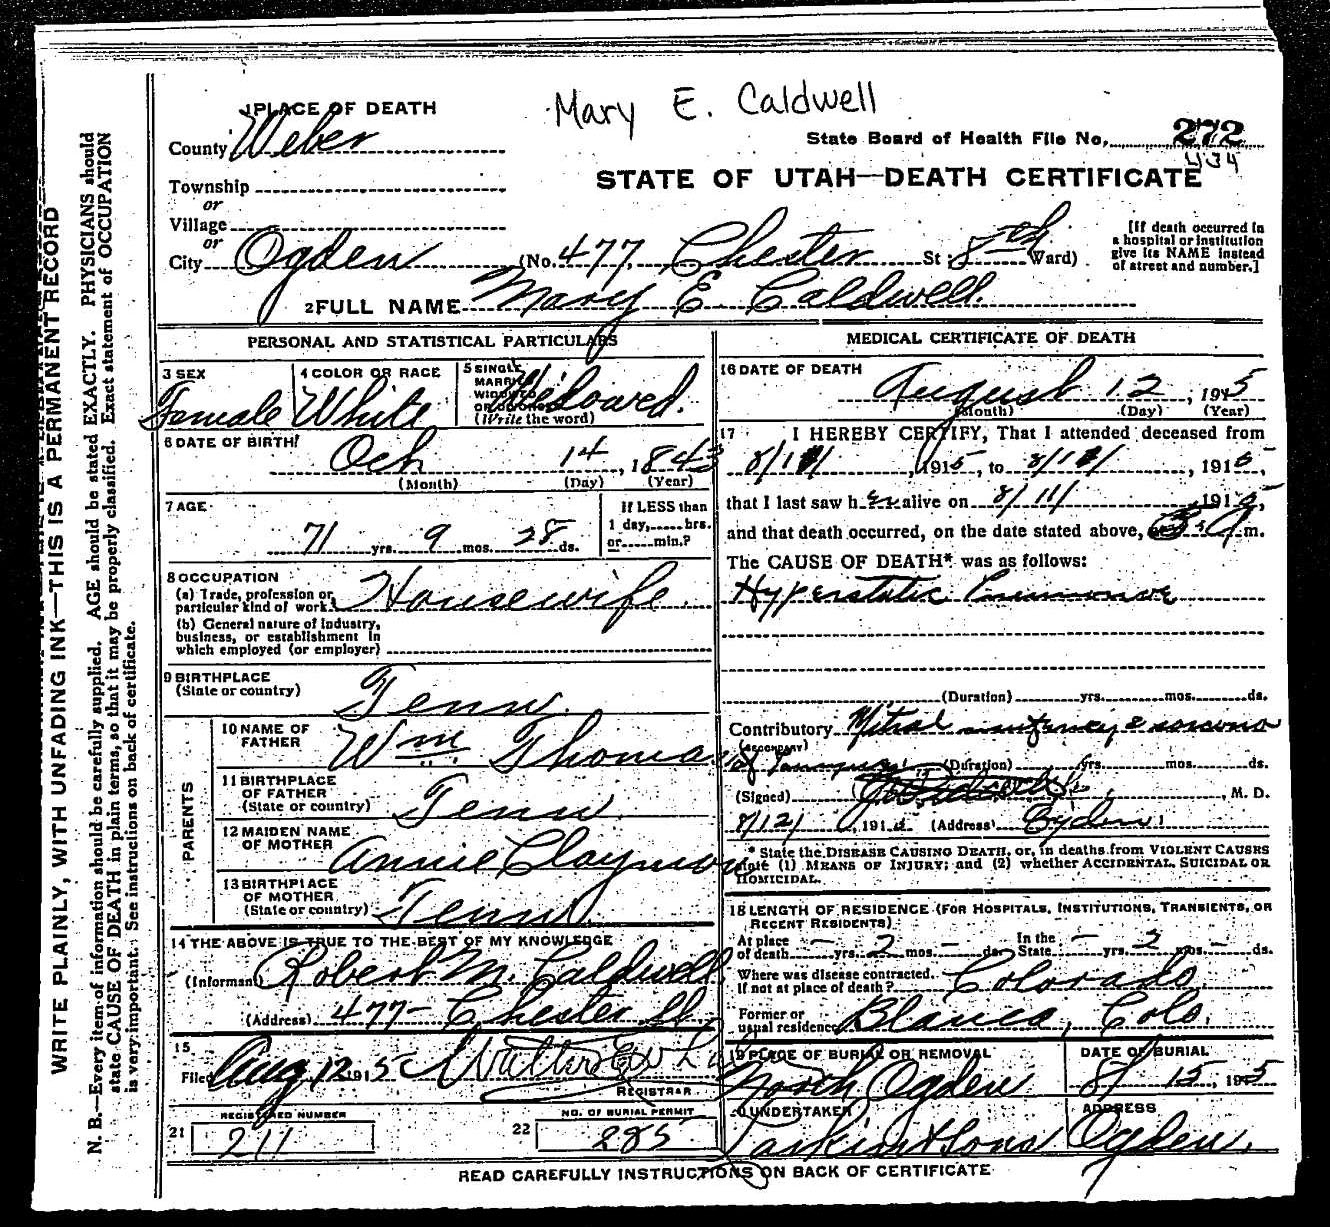 Mary E. Caldwell
1 PLACE OF DEATH
County Weber
State Board of Health File No. 272
434
Township
or
Village
or
STATE OF UTAH—DEATH CERTIFICATE
City Ogden (No. 477, Chester St; 8th Ward)
[If death occurred in a hospital or institution give its NAME instead of street and number.]
2 FULL NAME Mary E. Caldwell.
PERSONAL AND STATISTICAL PARTICULARS
3 SEX Female
4 COLOR OR RACE White
5 SINGLE, MARRIED, WIDOWED, OR DIVORCED (Write the word) Widowed.
6 DATE OF BIRTH Oct 14, 1843
(Month) (Day) (Year)
7 AGE 71 yrs. 9 mos. 28 ds.
If LESS than 1 day, hrs. or min.?
8 OCCUPATION
(a) Trade, profession or particular kind of work Housewife.
(b) General nature of industry, business, or establishment in which employed (or employer)
9 BIRTHPLACE (State or country) Tenn.
PARENTS
10 NAME OF FATHER Wm. Thomas
11 BIRTHPLACE OF FATHER (State or country) Tenn
12 MAIDEN NAME OF MOTHER Annie
13 BIRTHPLACE OF MOTHER (State or country) Tenn
14 THE ABOVE IS TRUE TO THE BEST OF MY KNOWLEDGE
(Informant) Robert M. Caldwell.
(Address) 477- Chester St.
15
Filed Aug 12 1915 Walter
REGISTRAR
REGISTERED NUMBER
21 211
NO. OF BURIAL PERMIT
22 285
MEDICAL CERTIFICATE OF DEATH
16 DATE OF DEATH
August 12, 1915
(Month) (Day) (Year)
17 I HEREBY CERTIFY, That I attended deceased from
8/11/, 1915, to 8/11/, 1915,
that I last saw her alive on 8/11/ 1915,
and that death occurred, on the date stated above, m.
The CAUSE OF DEATH* was as follows:
Hyperstatic Pneumonia
(Duration) yrs. mos. ds.
Contributory Mitral
(SECONDARY)
of (Duration) yrs. mos. ds.
(Signed) , M. D.
8/12/, 1915 (Address) Ogden
* State the DISEASE CAUSING DEATH, or, in deaths from VIOLENT CAUSES state (1) MEANS OF INJURY; and (2) whether ACCIDENTAL, SUICIDAL OR HOMICIDAL.
18 LENGTH OF RESIDENCE (FOR HOSPITALS, INSTITUTIONS, TRANSIENTS, OR RECENT RESIDENTS)
At place of death — yrs. 2 mos. — ds. In the State — yrs. 2 mos. — ds.
Where was disease contracted. If not at place of death? Colorado.
Former or usual residence Blanca, Colo.
19 PLACE OF BURIAL OR REMOVAL North Ogden
DATE OF BURIAL 8/ 15, 1915
20 UNDERTAKER Larkin & Sons
ADDRESS Ogden.
READ CAREFULLY INSTRUCTIONS ON BACK OF CERTIFICATE
WRITE PLAINLY, WITH UNFADING INK—THIS IS A PERMANENT RECORD
N. B.—Every item of information should be carefully supplied. AGE should be stated EXACTLY. PHYSICIANS should
state CAUSE OF DEATH in plain terms, so that it may be properly classified. Exact statement of OCCUPATION
is very important. See instructions on back of certificate.